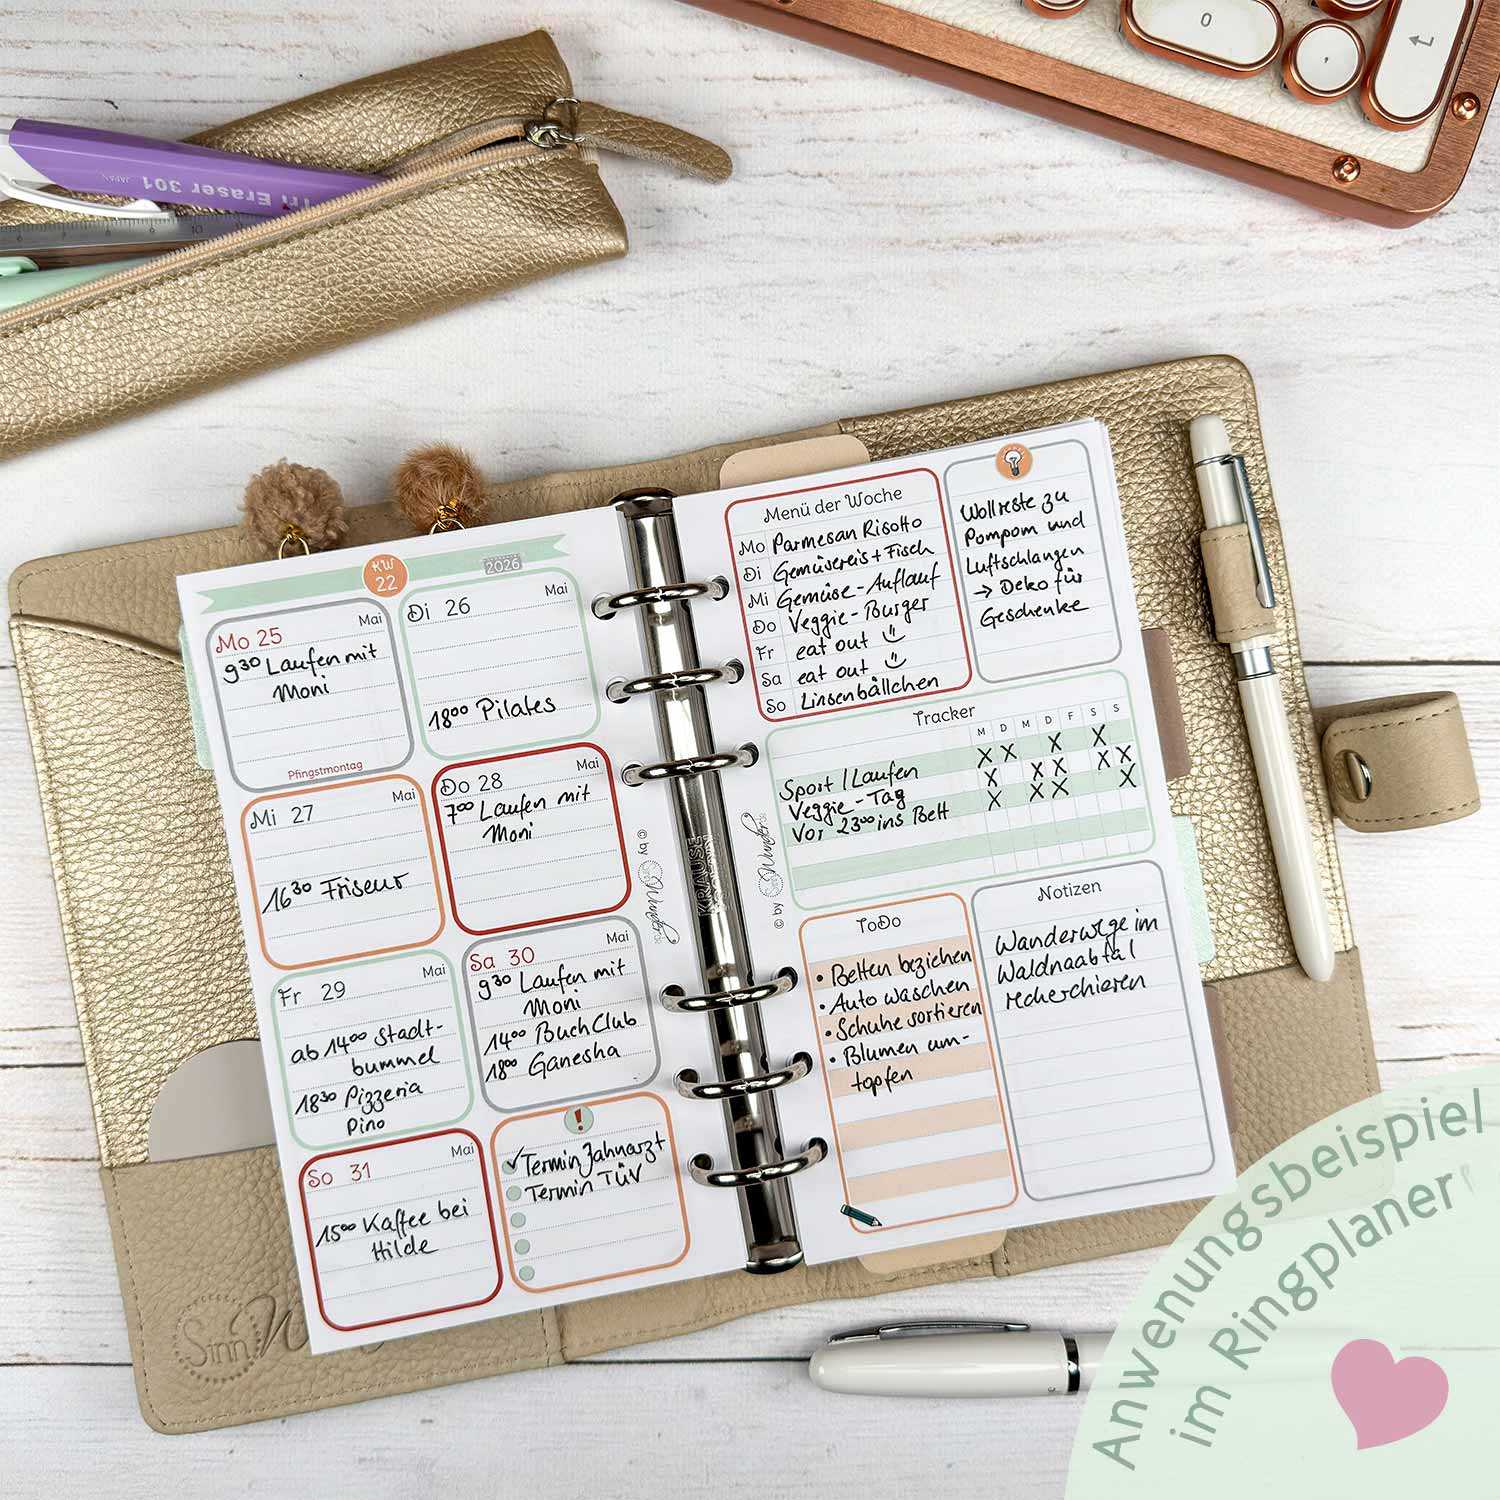 Tri Eraser 301
JAPAN
6 7 8 9 10
0
KW
22
2026
Mo 25 Mai
9³⁰ Laufen mit
Moni
Pfingstmontag
Di 26 Mai
18⁰⁰ Pilates
Mi 27 Mai
16³⁰ Friseur
Do 28 Mai
7⁰⁰ Laufen mit
Moni
Fr 29 Mai
ab 14⁰⁰ Stadt-
bummel
18³⁰ Pizzeria
Pino
Sa 30 Mai
9³⁰ Laufen mit
Moni
14⁰⁰ BuchClub
18⁰⁰ Ganesha
So 31 Mai
15⁰⁰ Kaffee bei
Hilde
!
✓ Termin Zahnarzt
Termin TÜV
© by SinnWunder.de
KRAUSE
© by SinnWunder.de
Menü der Woche
Mo Parmesan Risotto
Di Gemüsereis + Fisch
Mi Gemüse-Auflauf
Do Veggie-Burger
Fr eat out
Sa eat out
So Linsenbällchen
Wollreste zu
Pompom und
Luftschlangen
→ Deko für
Geschenke
Tracker
M D M D F S S
Sport / Laufen X X X X
Veggie-Tag X X X X X
Vor 23⁰⁰ ins Bett X X X X
ToDo
• Betten beziehen
• Auto waschen
• Schuhe sortieren
• Blumen um-
topfen
Notizen
Wanderwege im
Waldnaabtal
recherchieren
Sinn
Anwenungsbeispiel
im Ringplaner